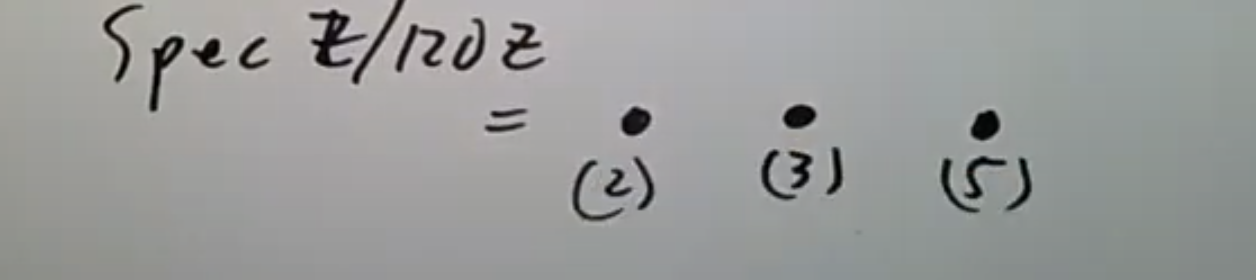 Spec Z/120Z
= • • •
(2) (3) (5)